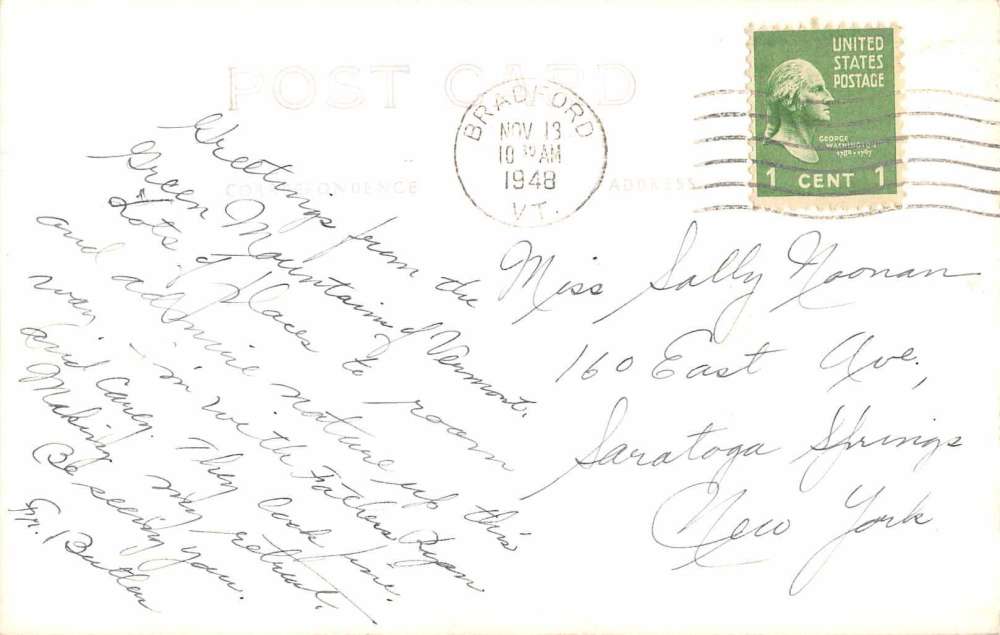 POST CARD
CORRESPONDENCE
ADDRESS
BRADFORD
NOV 13
10 30 AM
1948
VT.
UNITED
STATES
POSTAGE
GEORGE
WASHINGTON
1789-1797
1 CENT 1
Greetings from the
Green Mountains of Vermont.
Lots of places to roam
and admire nature up this
way - in with Fathers Ryan
and Carey. They cook fine.
Making my retreat.
Be seeing you.
Fr. Butler
Miss Sally Noonan
160 East Ave.,
Saratoga Springs
New York